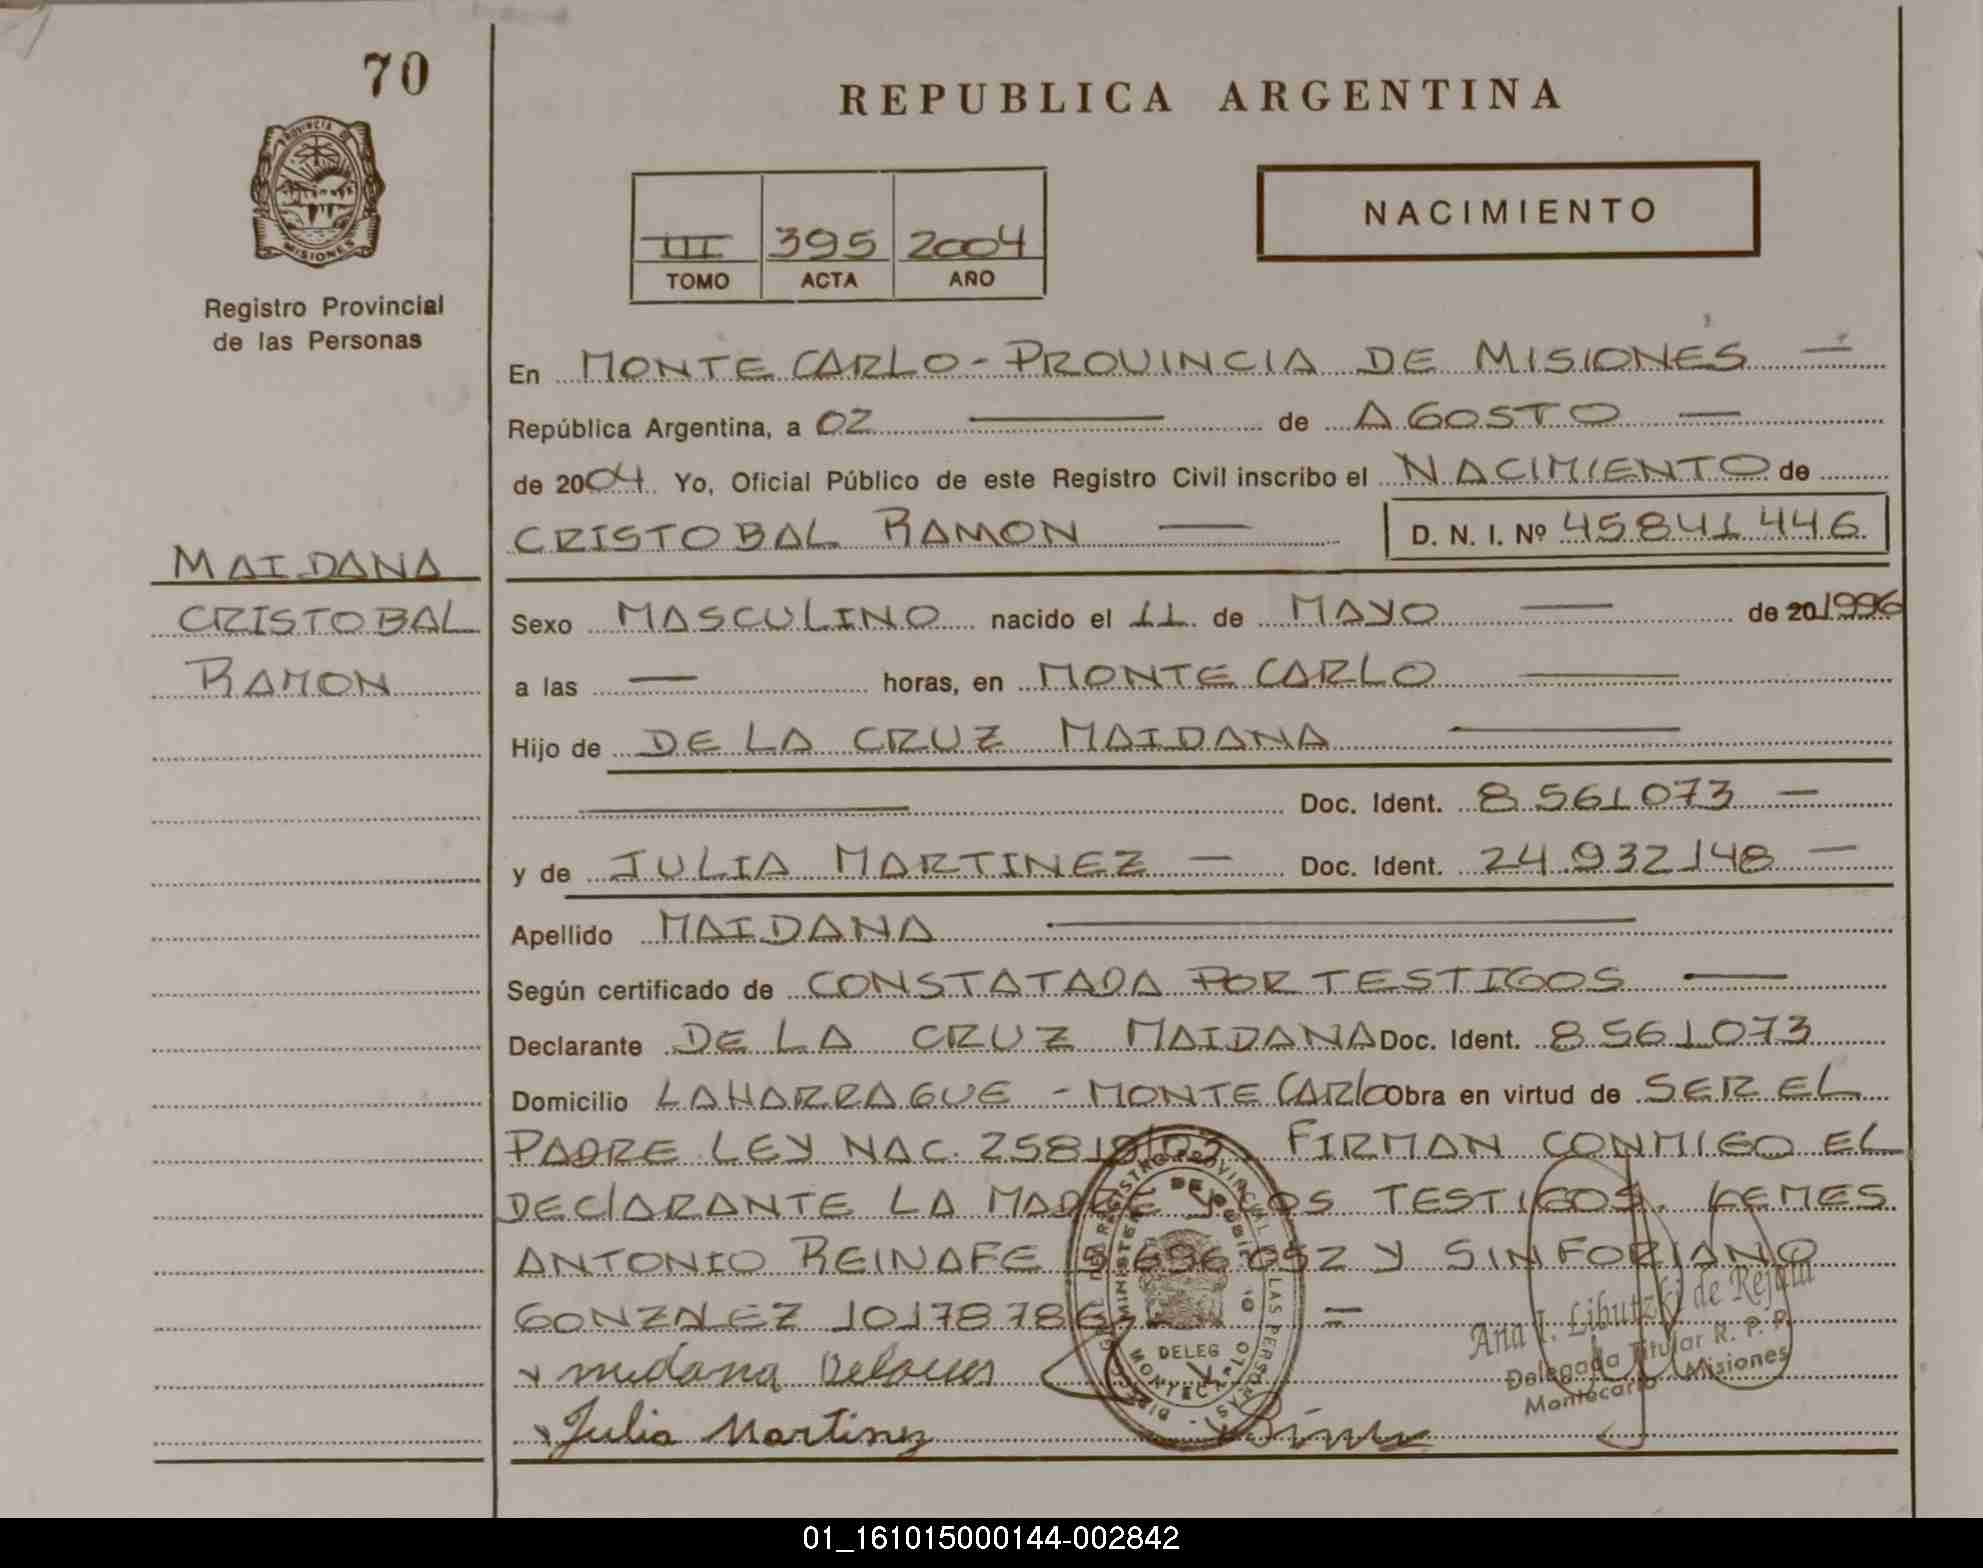 70
REPUBLICA ARGENTINA
PROVINCIA DE MISIONES
Registro Provincial
de las Personas
III 395 2004
TOMO ACTA AÑO
NACIMIENTO
En MONTE CARLO - PROVINCIA DE MISIONES —
República Argentina, a 02 — de AGOSTO —
de 2004. Yo, Oficial Público de este Registro Civil inscribo el NACIMIENTO de
CRISTOBAL RAMON — D. N. I. Nº 45841446
MAIDANA
CRISTOBAL
RAMON
Sexo MASCULINO nacido el 11 de MAYO — de 20 1996
a las — horas, en MONTE CARLO —
Hijo de DE LA CRUZ MAIDANA —
— Doc. Ident. 8561073 —
y de JULIA MARTINEZ — Doc. Ident. 24.932148 —
Apellido MAIDANA —
Según certificado de CONSTATADA POR TESTIGOS —
Declarante DE LA CRUZ MAIDANA Doc. Ident. 8561073
Domicilio LAHARRAGUE - MONTE CARLO Obra en virtud de SER EL
PADRE LEY NAC. 25819/03. FIRMAN CONMIGO EL
DECLARANTE LA MADRE Y LOS TESTIGOS.
ANTONIO REINAFE Y SINFORIANO
GONZALEZ 10178786 —
Julia Martinez
REGISTRO PROVINCIAL DE LAS PERSONAS
MINISTERIO DE GOBIERNO
DELEG
MONTECARLO
Ana I. Libutzki de Rejala
Delegada Titular R. P. P.
Montecarlo Misiones
01_161015000144-002842